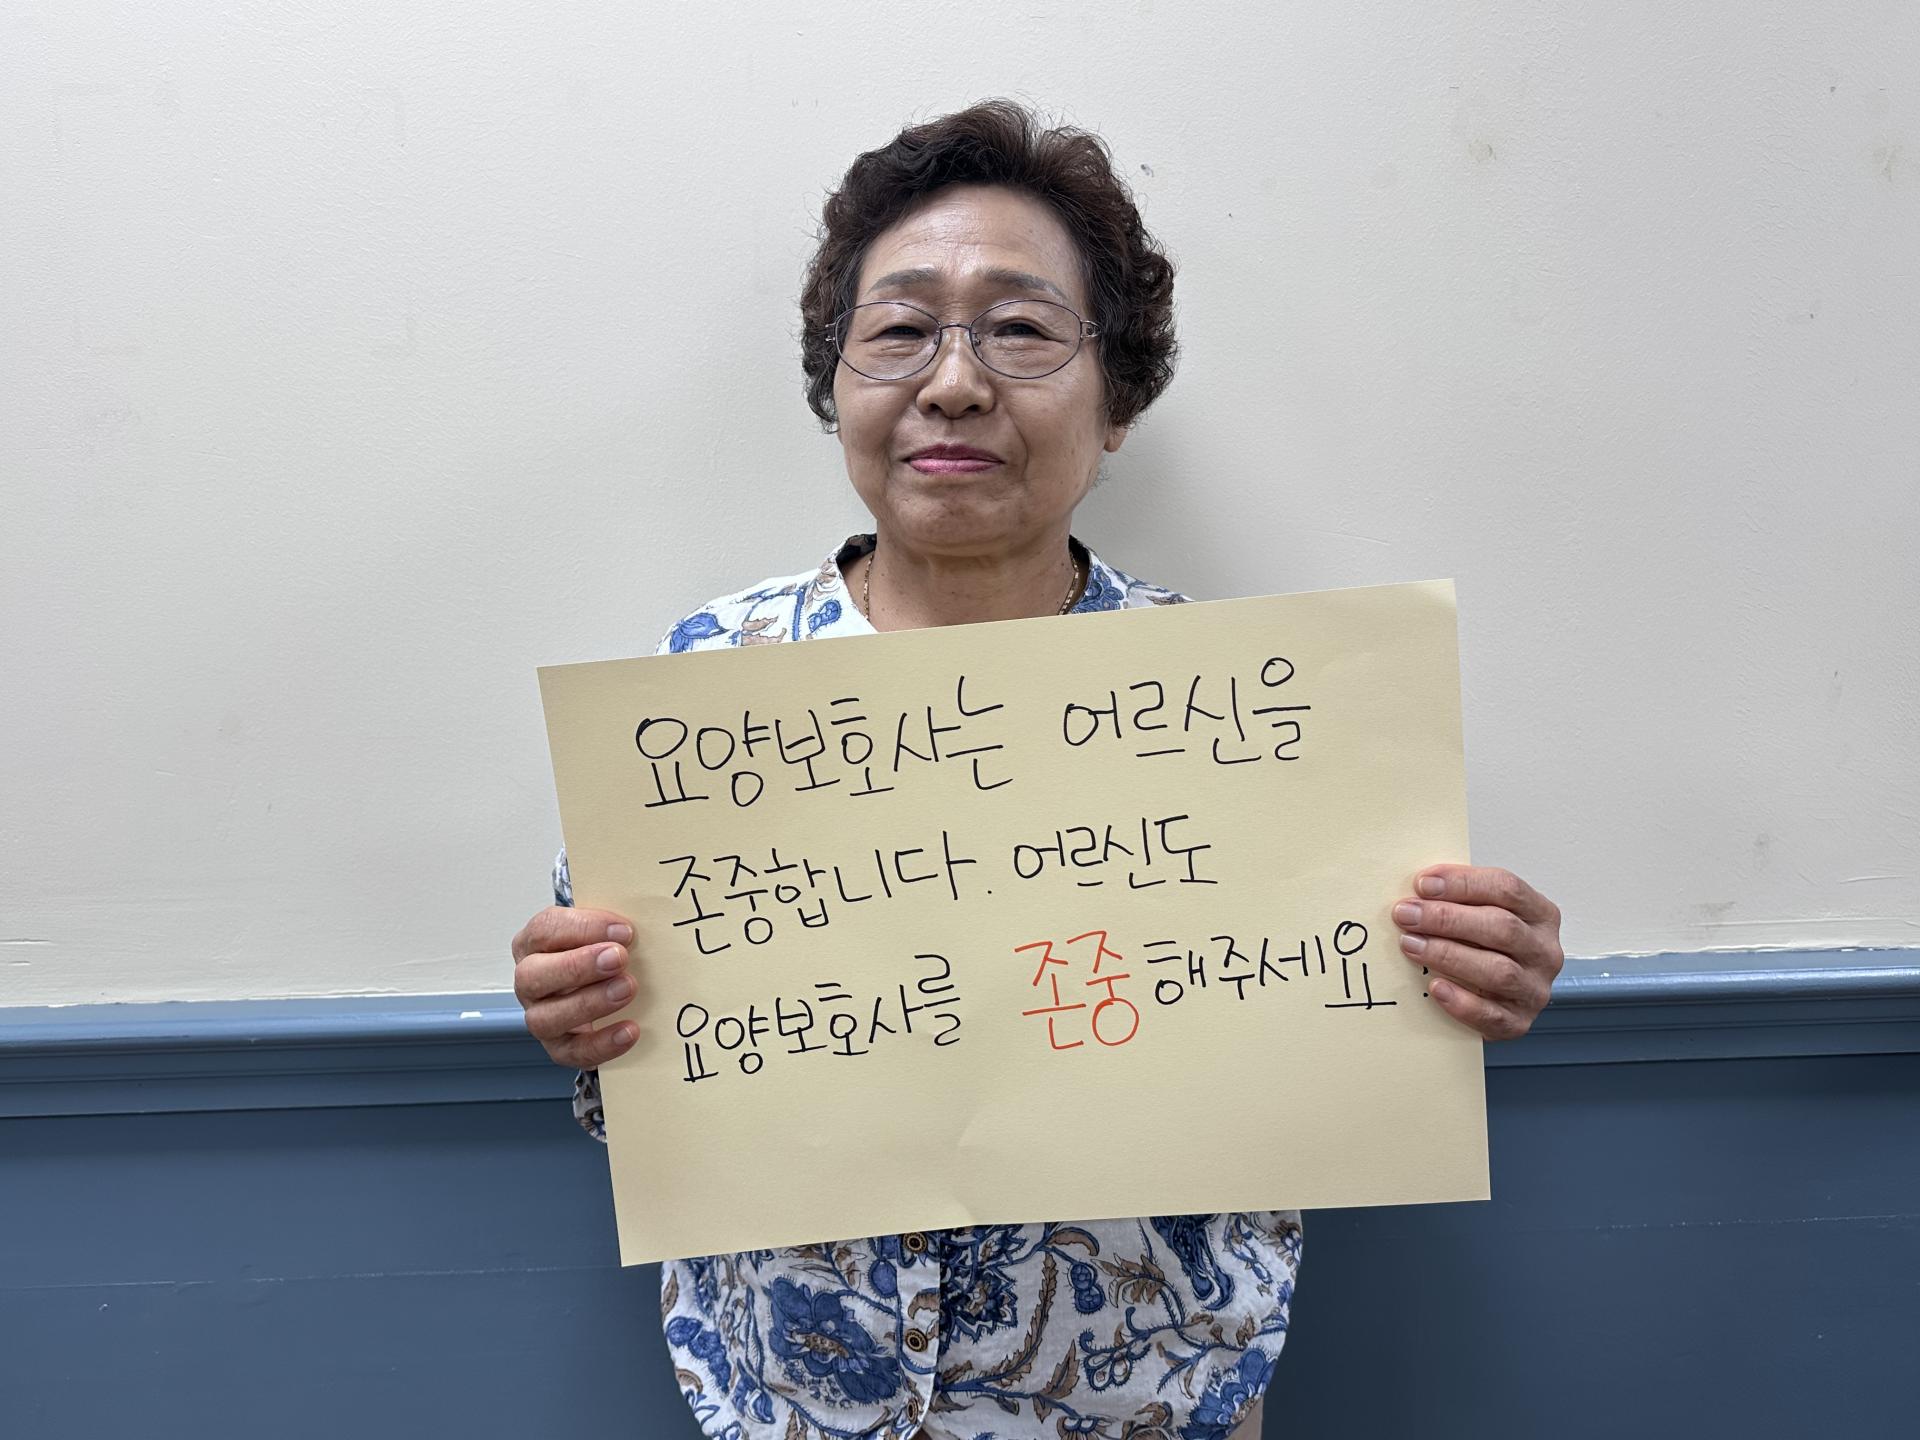 요양보호사는 어르신을
존중합니다. 어르신도
요양보호사를 존중해주세요!